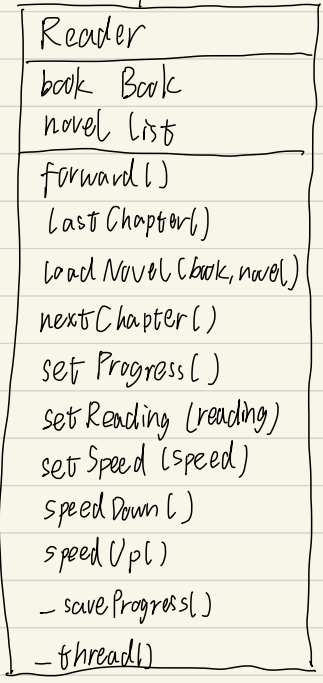 Reader
book Book
novel list
forward()
last Chapter()
load Novel (book, novel)
next Chapter()
set Progress()
set Reading (reading)
set Speed (speed)
speed Down()
speed Up()
_ save Progress()
_ thread()